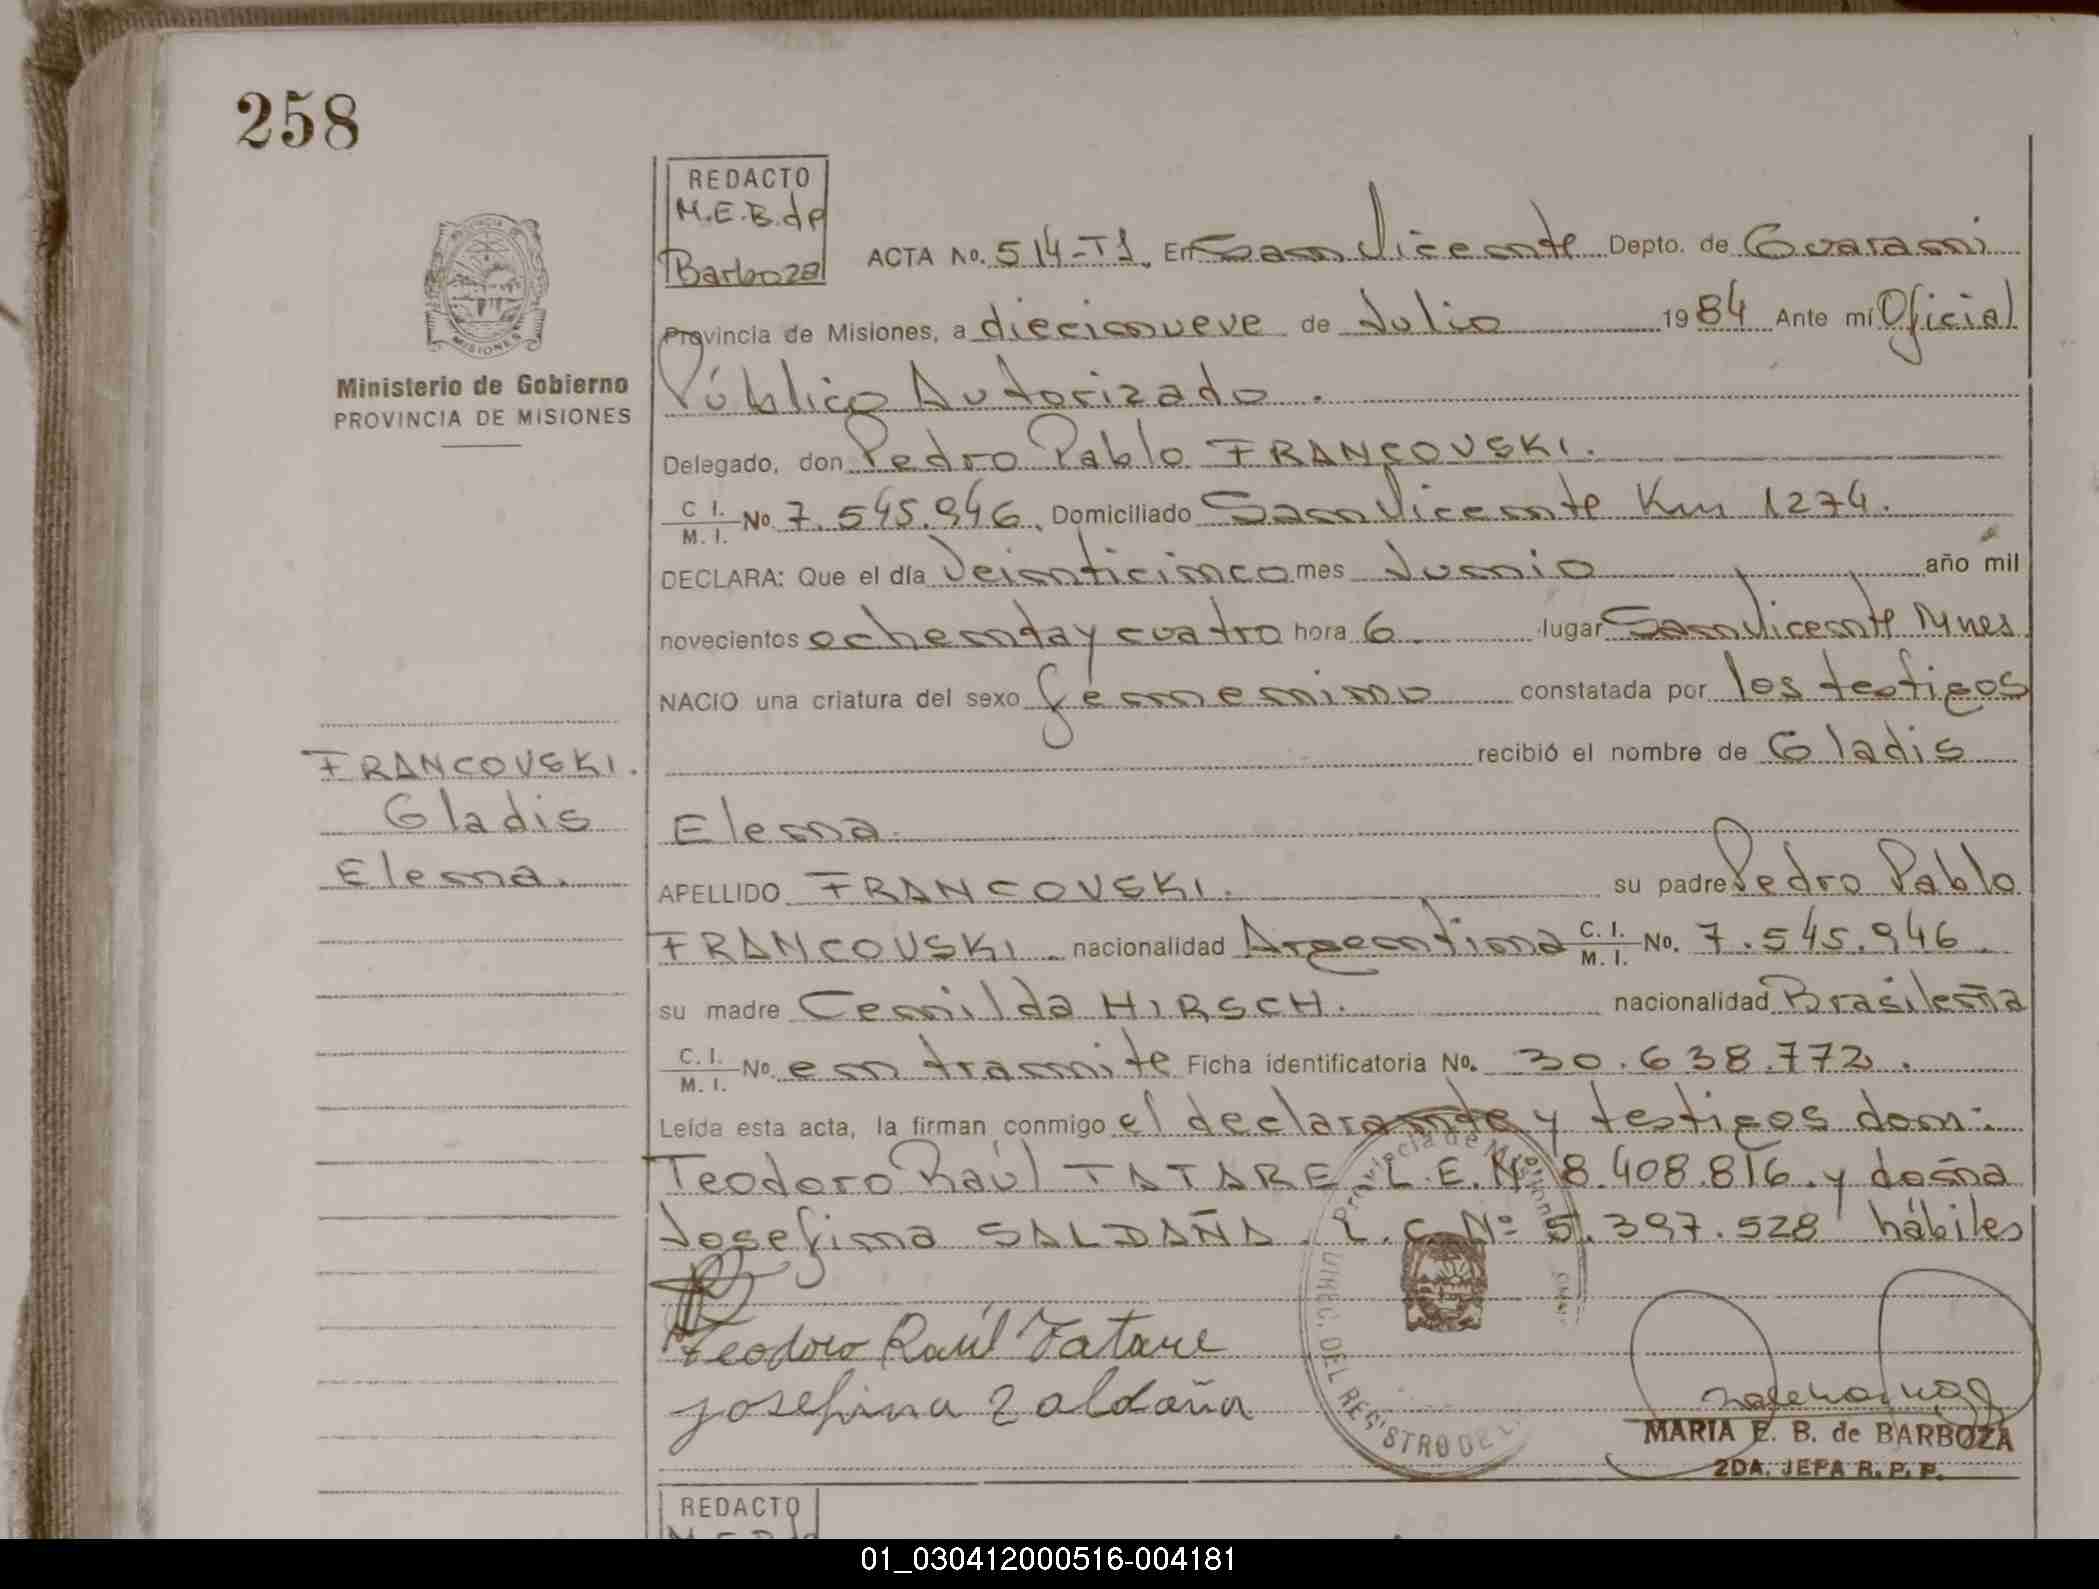 258
REDACTO
M.E.B.de
Barboza
ACTA No. 514-T1. En San Vicente Depto. de Guarani
Provincia de Misiones, a diecinueve de Julio 1984 Ante mí Oficial
Público Autorizado.
Ministerio de Gobierno
PROVINCIA DE MISIONES
MISIONES
Delegado, don Pedro Pablo FRANCOVSKI.
C. I.
M. I. No 7.545.946. Domiciliado San Vicente Km 1274.
DECLARA: Que el día Veinticinco mes Junio año mil
novecientos ochenta y cuatro hora 6. lugar San Vicente Mnes
NACIO una criatura del sexo femenino constatada por los testigos
recibió el nombre de Gladis
Elena.
FRANCOVSKI.
Gladis
Elena.
APELLIDO FRANCOVSKI. su padre Pedro Pablo
FRANCOVSKI. nacionalidad Argentina C. I.
M. I. No. 7.545.946.
su madre Cenilda HIRSCH. nacionalidad Brasileña
C. I.
M. I. No. en tramite Ficha identificatoria No. 30.638.772.
Leída esta acta, la firman conmigo el declarante y testigos don:
Teodoro Raúl TATARE. L.E.Nº 8.408.816. y doña
Josefina SALDAÑA. L.C.Nº 5.397.528 hábiles
Teodoro Raúl Tatare
josefina zaldaña
Provincia de Misiones
DIREC. DEL REGISTRO DE L
MARIA E. B. de BARBOZA
2DA. JEFA R. P. P.
REDACTO
M.E.B.de
01_030412000516-004181